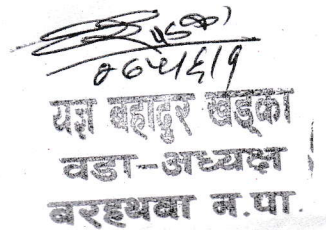 २०७५/६/१
यज्ञ बहादुर खड्का
वडा-अध्यक्ष
बरहथवा न.पा.